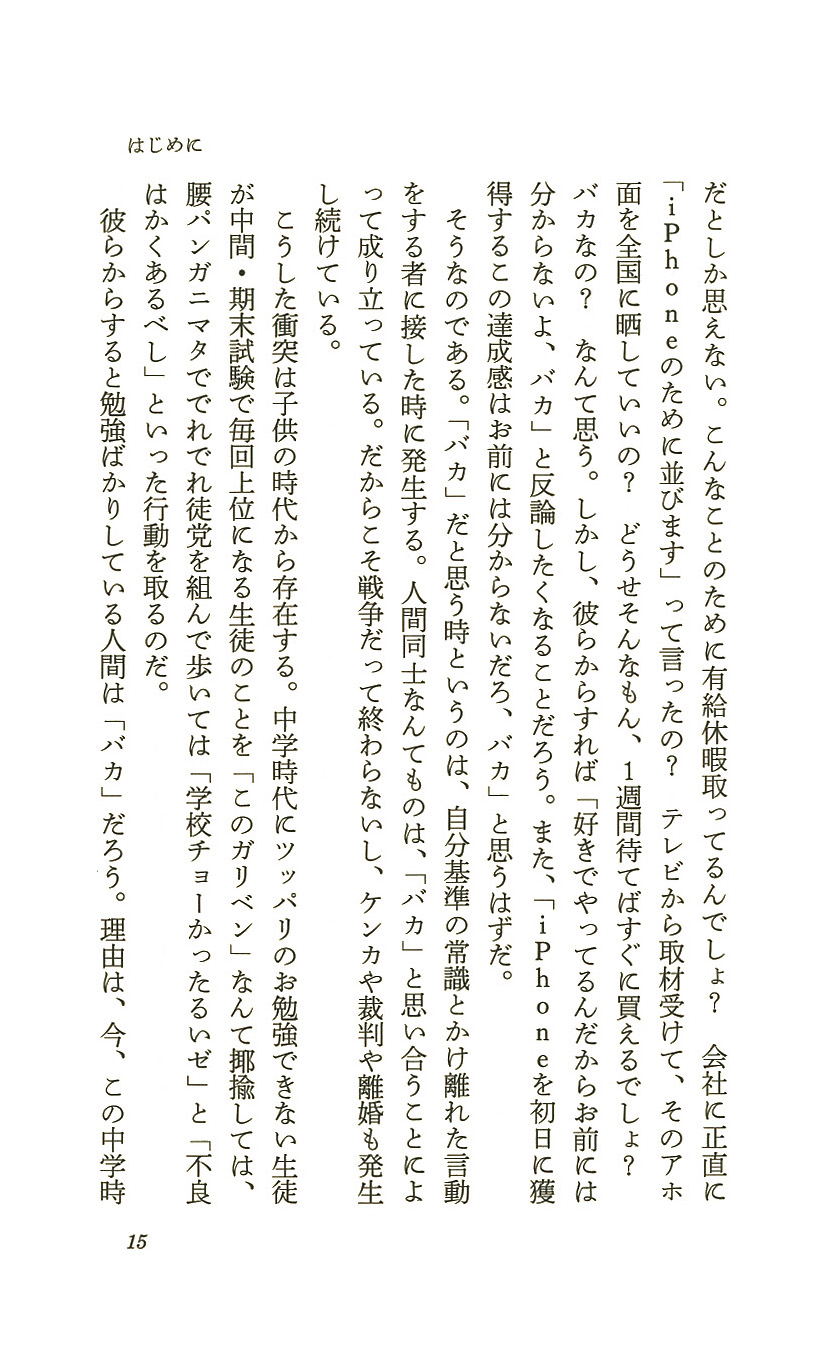 はじめに
だとしか思えない。こんなことのために有給休暇取ってるんでしょ？　会社に正直に
「iPhoneのために並びます」って言ったの？　テレビから取材受けて、そのアホ
面を全国に晒していいの？　どうせそんなもん、1週間待てばすぐに買えるでしょ？
バカなの？　なんて思う。しかし、彼らからすれば「好きでやってるんだからお前には
分からないよ、バカ」と反論したくなることだろう。また、「iPhoneを初日に獲
得するこの達成感はお前には分からないだろ、バカ」と思うはずだ。
　そうなのである。「バカ」だと思う時というのは、自分基準の常識とかけ離れた言動
をする者に接した時に発生する。人間同士なんてものは、「バカ」と思い合うことによ
って成り立っている。だからこそ戦争だって終わらないし、ケンカや裁判や離婚も発生
し続けている。
　こうした衝突は子供の時代から存在する。中学時代にツッパリのお勉強できない生徒
が中間・期末試験で毎回上位になる生徒のことを「このガリベン」なんて揶揄しては、
腰パンガニマタででれでれ徒党を組んで歩いては「学校チョーかったるいゼ」と「不良
はかくあるべし」といった行動を取るのだ。
　彼らからすると勉強ばかりしている人間は「バカ」だろう。理由は、今、この中学時
15